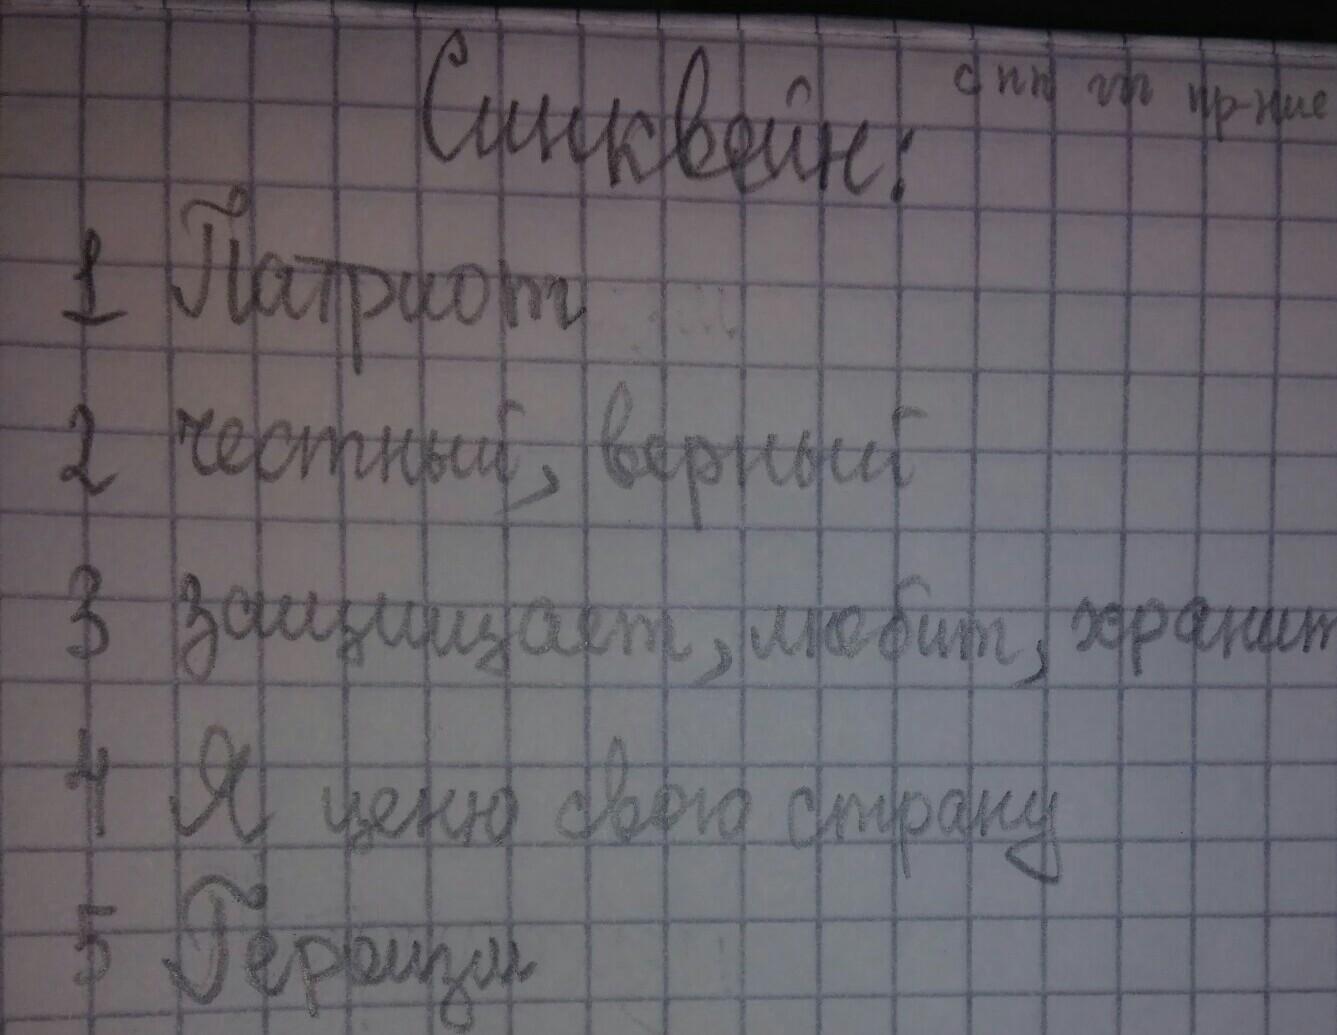 с пп гп пр-ние
Синквейн:
1 Патриот
2 честный, верный
3 защищает, любит, хранит
4 Я ценю свою страну
5 Героизм